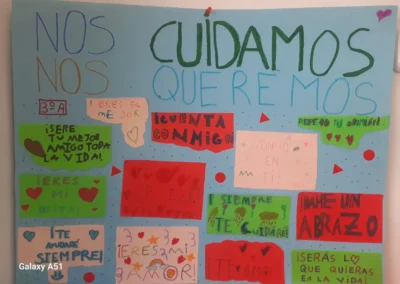 NOS CUÍDAMOS
NOS QUEREMOS
3ºA
¡ERES EL
MEJOR
¡CUENTA
CONMIGO!
¡SERE
TU MEJOR
AMIGO TODA
LA VIDA!
CONFIO
EN
TI
¡ERES
MI
¡SIEMPRE
TE
CUIDARE!
¡DAME UN
ABRAZO
¡TE
AYUDARE
SIEMPRE!
¡ERES MI
AMOR!
¡TE AMO!
¡SERÁS LO
QUE QUIERAS
EN LA VIDA!
Galaxy A51